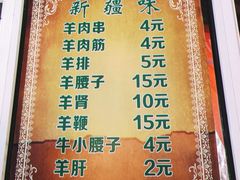 新疆味
羊肉串 4元
羊肉筋 4元
羊排 5元
羊腰子 15元
羊肾 10元
羊鞭 15元
牛小腰子 4元
羊肝 2元